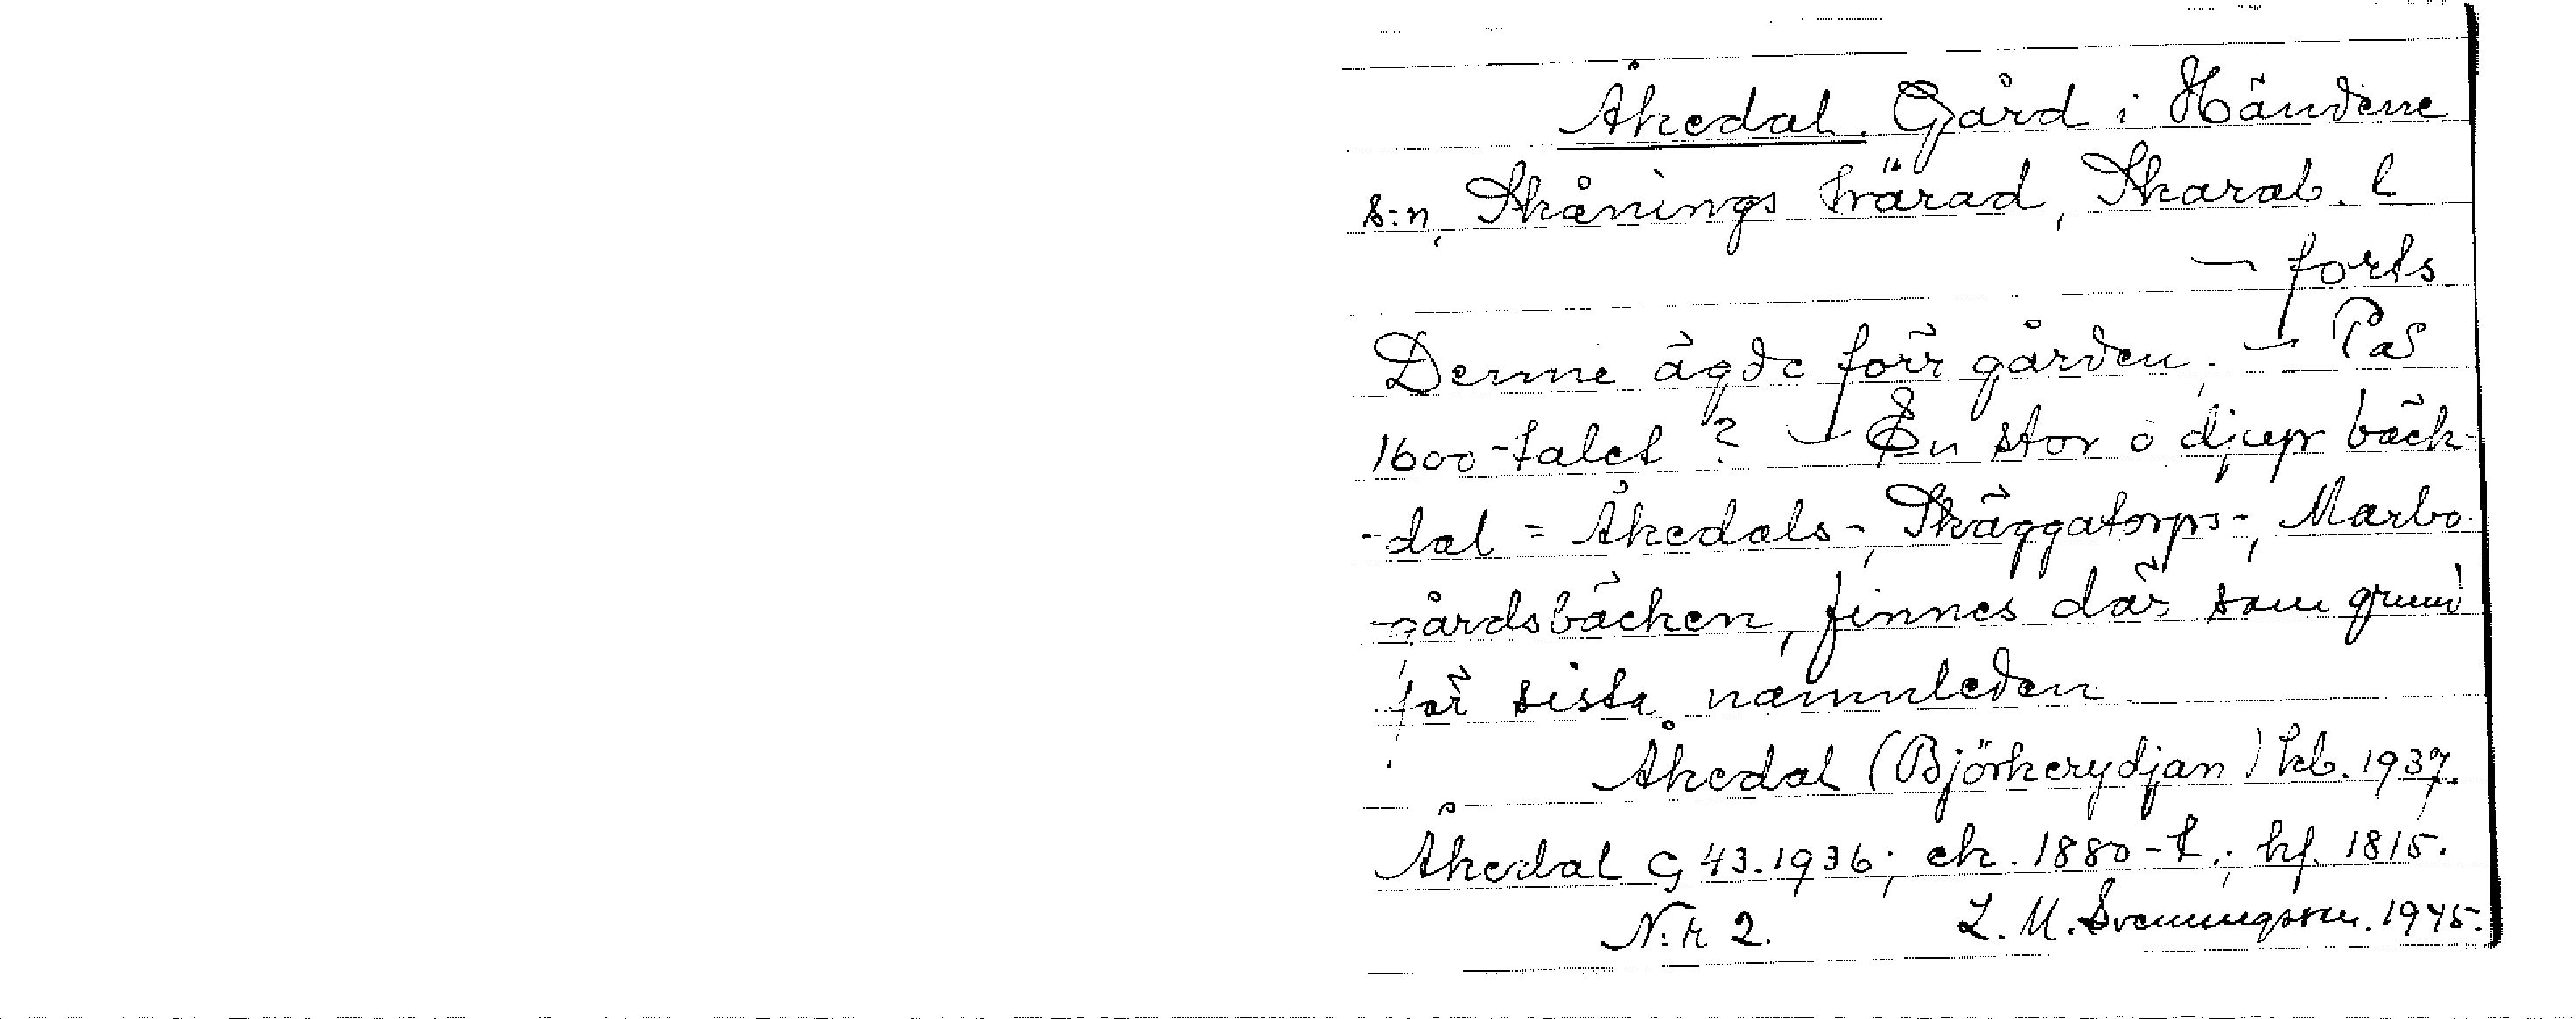 Åkedal. Gård i Händene
s:n, Skånings härad, Skarab. l
— forts
Denne ägde förr gården. — På
1600-talet? — En stor o djup bäck-
-dal = Åkedals-, Skäggatorps-, Marbo-
gårdsbäcken, finnes där som grund
för sista namnleden
Åkedal (Björkerydjan) kb. 1937.
Åkedal G 43. 1936; ek. 1880-t.; hf. 1815.
N:r 2. L. M. Svenungsson. 1945.